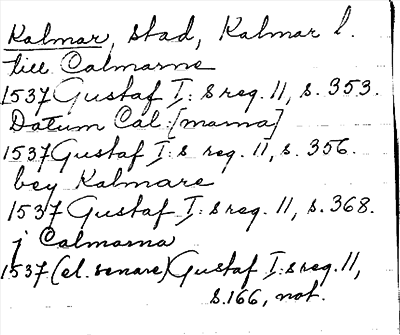 Kalmar, stad, Kalmar l.
till Calmarne
1537 Gustaf I:s reg. 11, s. 353.
Datum Cal[marna]
1537 Gustaf I:s reg. 11, s. 356.
bey Kalmare
1537 Gustaf I:s reg. 11, s. 368.
j Calmarna
1537 (el. senare) Gustaf I:s reg. 11,
s. 166, not.